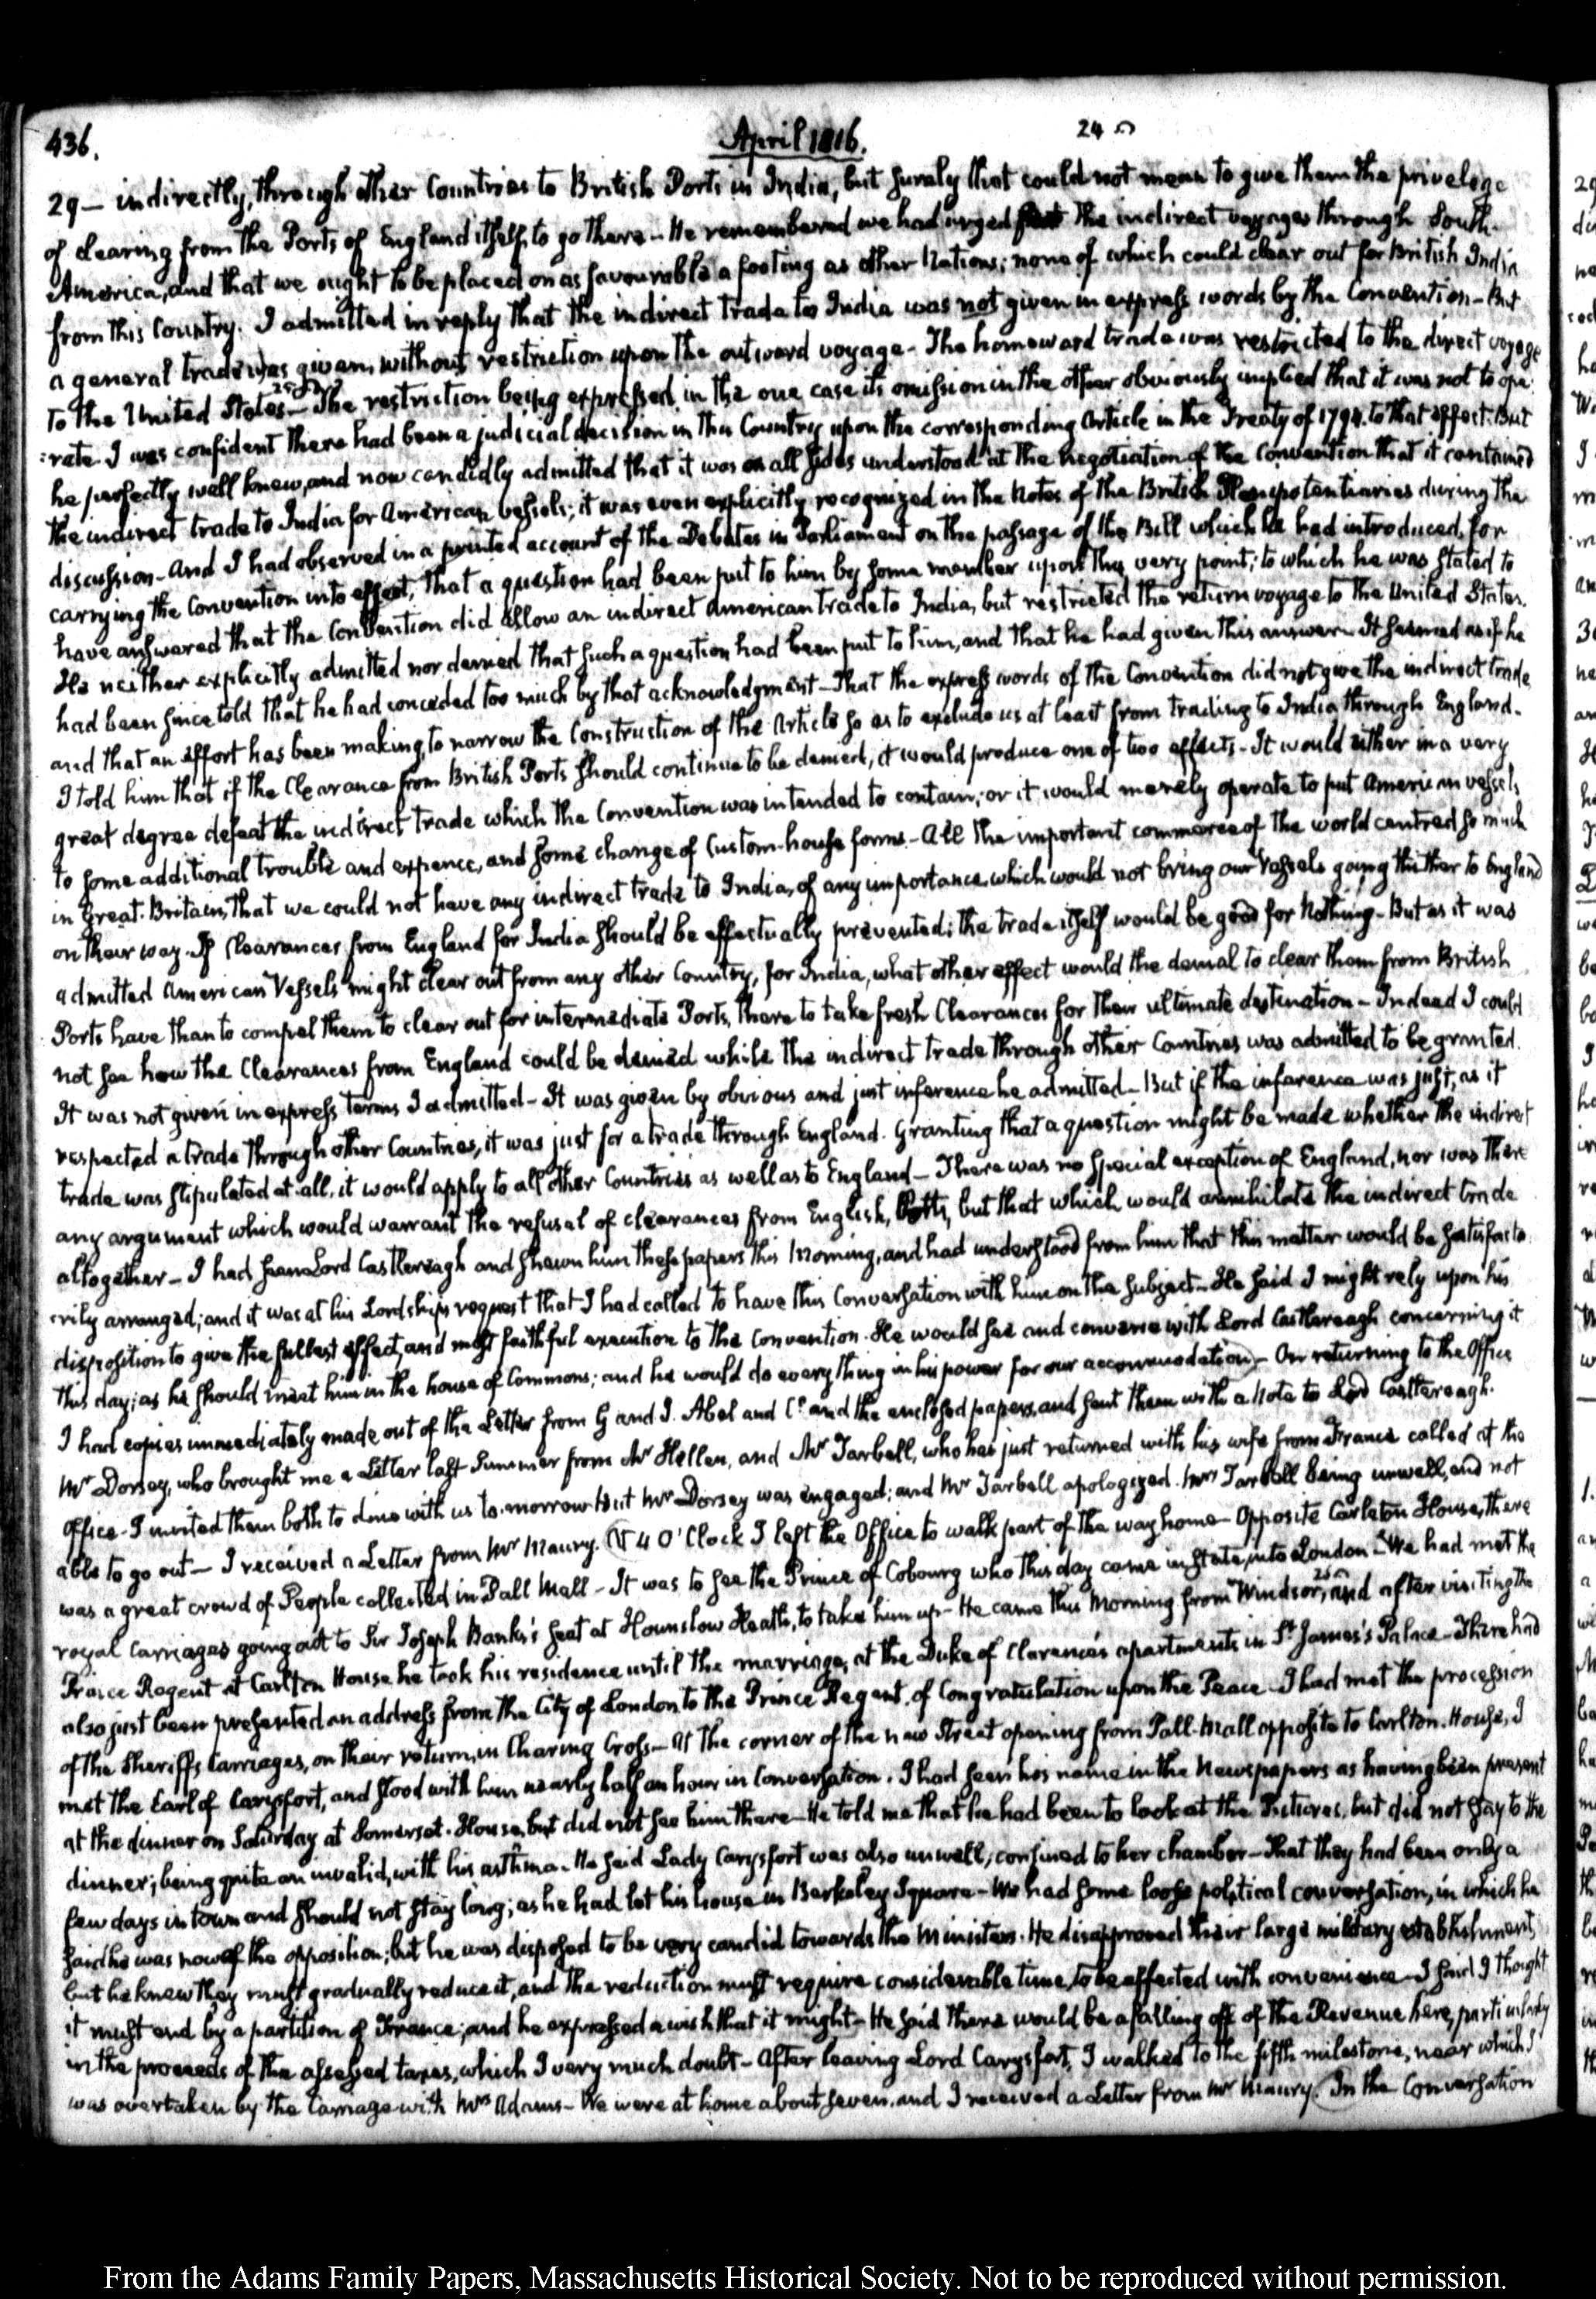 436.
April 1816.
24
29— indirectly, through other Countries to British Ports in India, but surely that could not mean to give them the privelege
of clearing from the Ports of England itself, to go there — He remembered we had urged the indirect voyages through South-
America, and that we ought to be placed on as favourable a footing as other Nations; none of which could clear out for British India
from this Country. I admitted in reply that the indirect trade to India was not given in express words by the Convention — But
a general trade was given, without restriction upon the outward voyage — The homeward trade was restricted to the direct voyage
to the United States — The restriction being expressed in the one case its omission in the other obviously implied that it was not to ope-
:rate. I was confident there had been a judicial decision in this Country upon the corresponding Article in the Treaty of 1794. to that effect. But
he perfectly well knew, and now candidly admitted that it was on all sides understood at the negotiation of the Convention that it contained
the indirect trade to India for American vessels; it was even explicitly recognized in the Notes of the British Plenipotentiaries during the
discussion — And I had observed in a printed account of the Debates in Parliament on the passage of the Bill which he had introduced, for
carrying the Convention into effect, that a question had been put to him by some member upon this very point; to which he was stated to
have answered that the Convention did allow an indirect American trade to India, but restricted the return voyage to the United States.
He neither explicitly admitted nor denied that such a question had been put to him, and that he had given this answer. It seemed as if he
had been since told that he had conceded too much by that acknowledgment — That the express words of the Convention did not give the indirect trade
and that an effort has been making, to narrow the Construction of the Article so as to exclude us at least from trading to India through England.
I told him that if the Clearance from British Ports should continue to be denied, it would produce one of two effects — It would either in a very
great degree defeat the indirect trade which the Convention was intended to contain; or it would merely operate to put American vessels
to some additional trouble and expence, and some change of Custom-house forms — All the important commerce of the world centred so much
in Great-Britain, that we could not have any indirect trade to India, of any importance, which would not bring our Vessels going thither to England
on their way. If Clearances from England for India should be effectually prevented; the trade itself would be good for Nothing — But as it was
admitted American Vessels might clear out from any other Country, for India, what other effect would the denial to clear them from British
Ports have than to compel them to clear out for intermediate Ports, there to take fresh Clearances for their ultimate destination — Indeed I could
not see how the Clearances from England could be denied while the indirect trade through other Countries was admitted to be granted.
It was not given in express terms I admitted — It was given by obvious and just inference he admitted — But if the inference was just, as it
respected a trade through other Countries, it was just for a trade through England. Granting that a question might be made whether the indirect
trade was stipulated at all, it would apply to all other Countries as well as to England — There was no special exception of England, nor was there
any argument which would warrant the refusal of clearances from English Ports, but that which would annihilate the indirect trade
altogether — I had seen Lord Castlereagh and shewn him these papers this Morning, and had understood from him that this matter would be satisfacto-
:rily arranged; and it was at his Lordship's request that I had called to have this Conversation with him on the subject — He said I might rely upon his
disposition to give the fullest effect, and most faithful execution to the Convention. He would see and converse with Lord Castlereagh concerning it
this day; as he should meet him in the house of Commons; and he would do every thing in his power for our accommodation — On returning to the Office
I had copies immediately made out of the Letter from G and I. Abel and Co. and the enclosed papers, and sent them with a Note to Lord Castlereagh.
Mr Dorsey, who brought me a Letter last Summer from Mr Hellen, and Mr Tarbell, who has just returned with his wife from France called at the
Office. I invited them both to dine with us to-morrow but Mr Dorsey was engaged; and Mr Tarbell apologized. Mrs Tarbell being unwell, and not
able to go out — I received a Letter from Mr Maury. At 4 O'Clock I left the Office to walk part of the way home — Opposite Carleton House, there
was a great crowd of People collected in Pall Mall — It was to see the Prince of Cobourg who this day came in State, into London — We had met the
royal Carriages going out to Sir Joseph Banks's seat at Hounslow Heath, to take him up — He came this Morning from Windsor, and after visiting the
Prince Regent at Carlton House he took his residence until the marriage, at the Duke of Clarence's apartments in St. James's Palace — There had
also just been presented an address from the City of London to the Prince Regent, of Congratulation upon the Peace — I had met the procession
of the Sheriffs Carriages, on their return, in Charing Cross — At the corner of the new Street opening from Pall-Mall opposite to Carlton-House, I
met the Earl of Carysfort, and stood with him nearly half an hour in Conversation. I had seen his name in the Newspapers as having been present
at the dinner on Saturday at Somerset-House, but did not see him there — He told me that he had been to look at the Pictures, but did not stay to the
dinner; being quite an invalid, with his asthma — He said Lady Carysfort was also unwell, confined to her chamber — That they had been only a
few days in town and should not stay long; as he had let his house in Berkeley Square — We had some loose political conversation, in which he
said he was now of the opposition; but he was disposed to be very candid towards the Ministers. He disapproved their large military establishment;
but he knew they must gradually reduce it, and the reduction must require considerable time, to be effected with convenience — I said I thought
it must end by a partition of France; and he expressed a wish that it might — He said there would be a falling off of the Revenue here, particularly
in the proceeds of the assessed taxes, which I very much doubt — After leaving Lord Carysfort, I walked to the fifth milestone, near which I
was overtaken by the Carriage with Mrs Adams — We were at home about seven, and I received a Letter from Mr Maury. In the Conversation
From the Adams Family Papers, Massachusetts Historical Society. Not to be reproduced without permission.